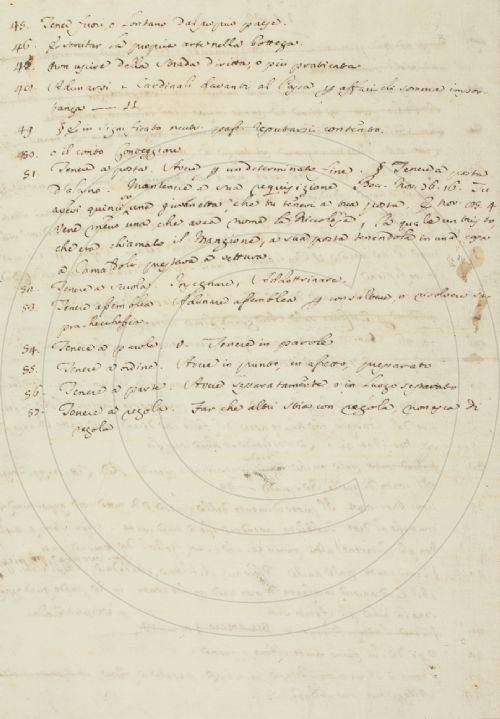 45. Tener fuori, o lontano dal proprio paese.
46. Esercitar la propria arte nella bottega.
47. Non uscire della strada diritta, o più praticata
48. Adunarsi i Cardinali davanti al Papa p affari di somma impor-
tanza
49. in significato neut. pass. Reputarsi contento.
50. o il conto Conteggiare
51. Tenere a posta. Avere p un determinato fine. § Tenere a posta
d'alcuno. Mantenere a sua requisizione. Bocc. Nov. 36. 16. Tu
avevi quinci una giovinetta, che tu tenevi a tua posta. E nov. 4
venne meno una che avea nome la Niccolosa, la quale un tristo,
che era chiamato il Mangione, a sua posta tenendola in una casa
a Camaldoli prestava a vettura.
52. Tenere a scuola. Insegnare, Addottrinare.
53. Tenere assemblea. Adunare assemblea p consultare, o risolvere so-
pra checchessia
54. Tenere a parole. V. Tenere in parole
55. Tenere a ordine. Avere in punto, in assetto, preparato
56. Tenere a parte. Avere separatamente o in luogo separato
57. Tenere a regola. Far che altri stia con regola, non esca di
regola